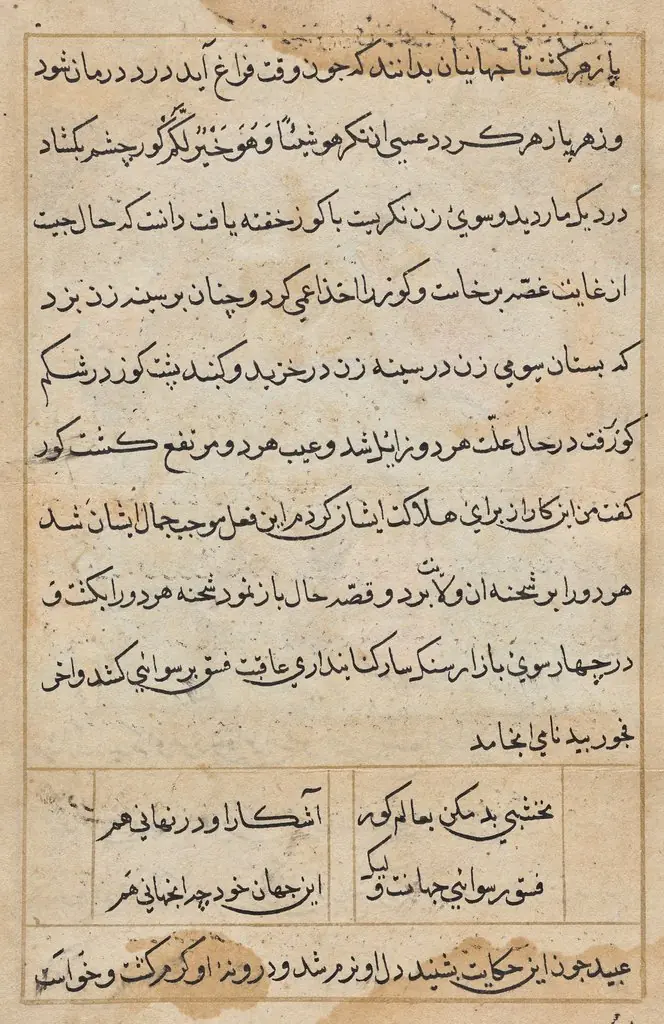 پازهر گشت تا جهانیان بدانند که جون وقت فراغ آید درد درمان شود
و زهر پازهر کردد عسی ان تکرهوا شیئا وَهُوَ خَیْرٌ لَّکُم کور چشم بکشاد
در دیک مار دید و سوئ زن نکریست با کوز خفته یافت دانست که حال جیست
از غایت غصّه برخاست و کوز را اخذ اعمی کرد و چنان بر سینه زن بزد
که بستان سومی زن در سینه زن در خزید و کنبد پشت کوز در شکم
کوز رَفت در حال علّت هر دو زایل شد و عیب هر دو مرتفع کشت کور
کفت من این کار از برای هلاکت ایشان کردم این فعل موجب جمال ایشان شد
هر دو را بر شحنه ان ولایت برد و قصّه حال باز نمود شحنه هر دو را بکشت و
در چهار سوئ بازار سنکسار کنانید اری عاقبت فسق برسوائی کشد و اخر
فجور ببد نامی انجامد
نخشبی بد مکن بعالم کور آشکارا و در نهانی هم
فسق رسوائی جهانست ولیک این جهان خود چه انجهانی هَم
عبید جون این حکایت بشنید دل او نرم شد و درونهٔ او کرم کشت و خواست